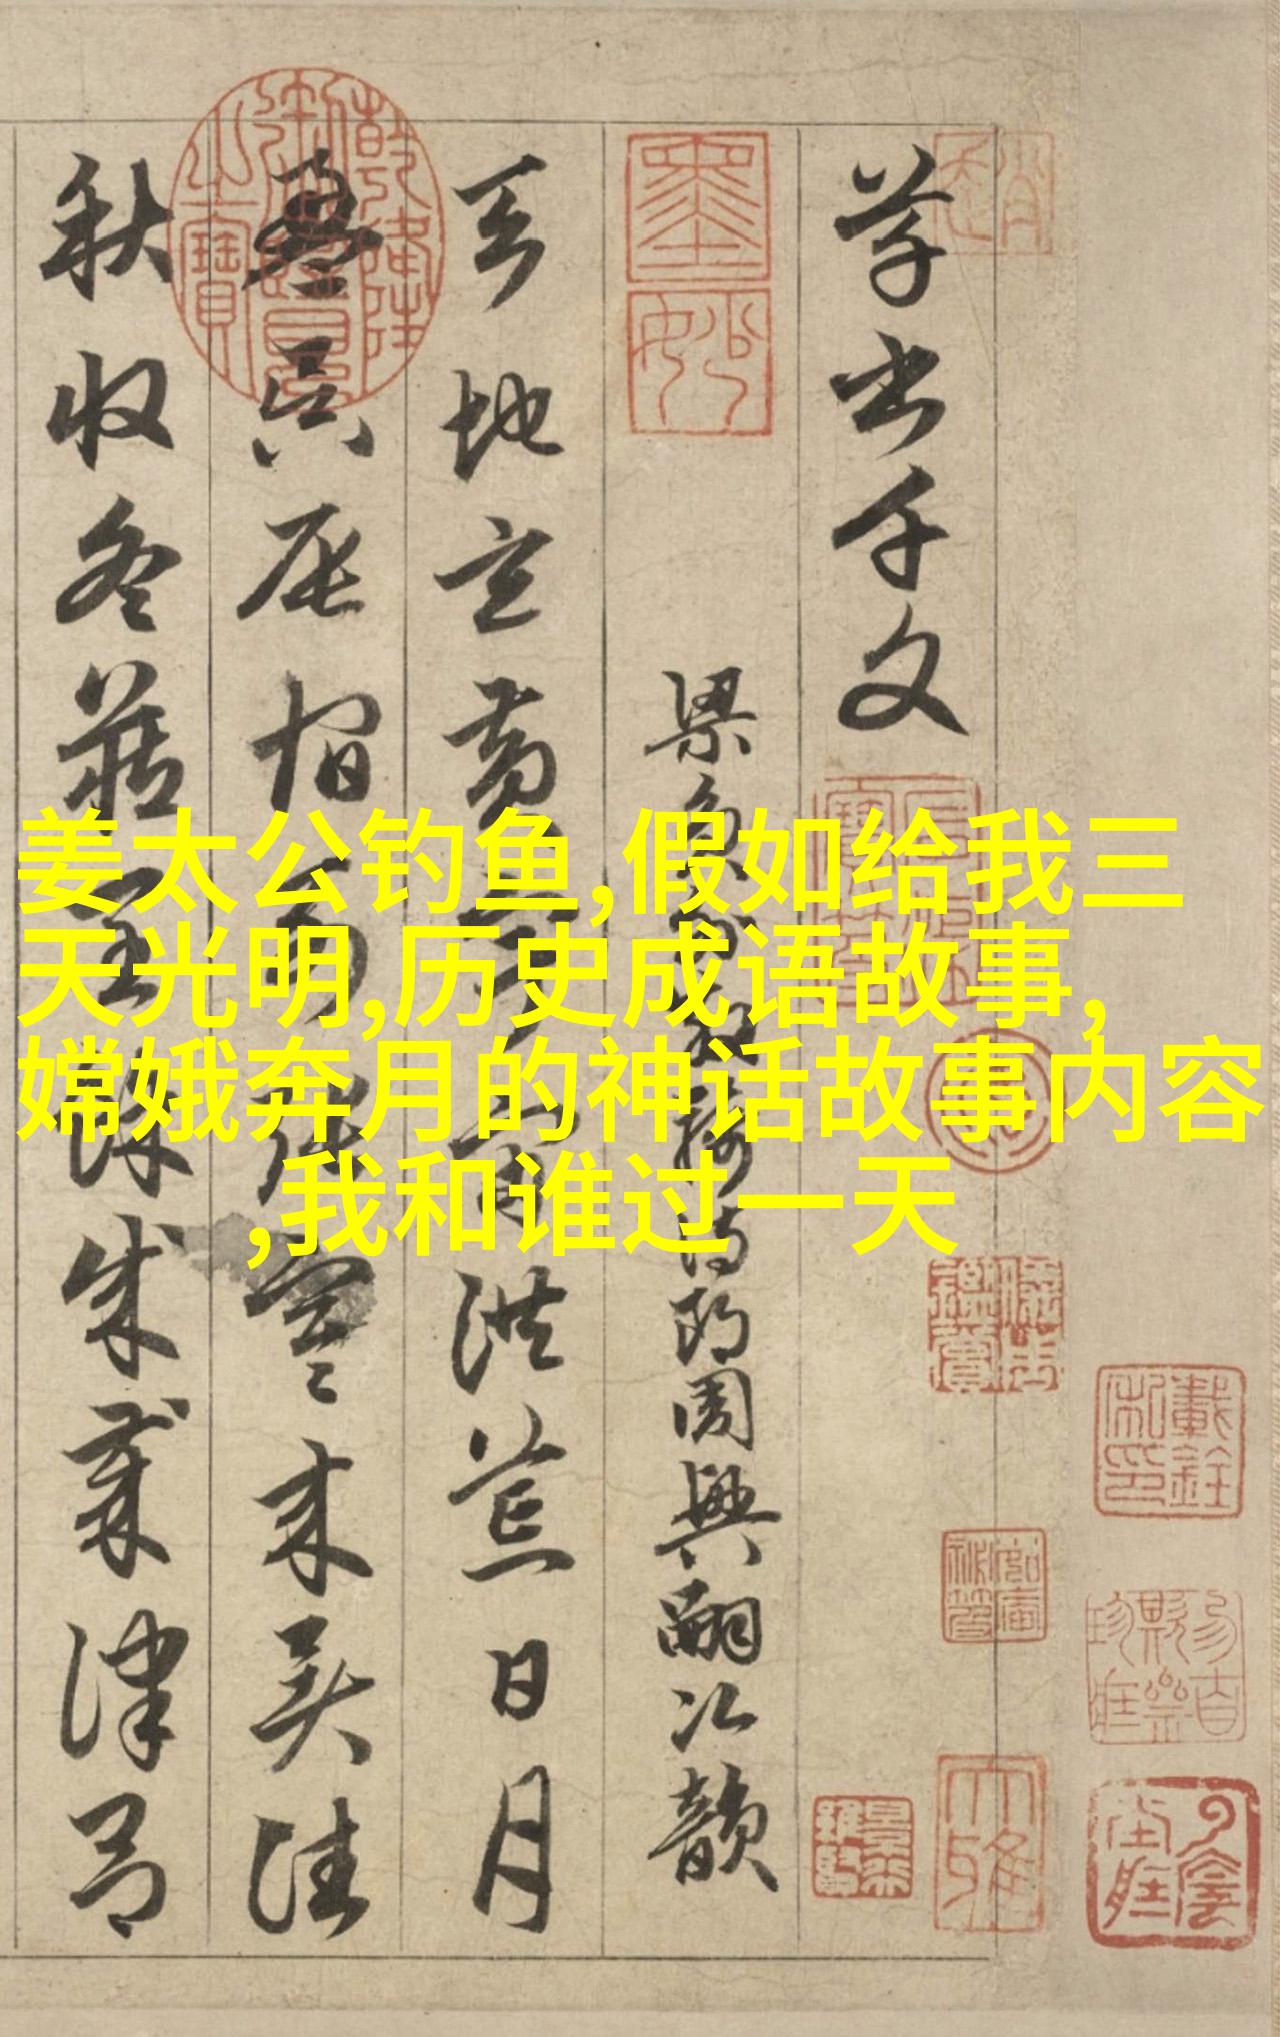 草书千文
梁员外散骑侍郎周兴嗣次韵
天地玄黄宇宙洪荒日月
盈昃辰宿列张寒来暑往
秋收冬藏闰馀成岁律吕
姜太公钓鱼,假如给我三
天光明,历史成语故事,
嫦娥奔月的神话故事内容
,我和谁过一天
墨妙
乾隆御览之宝